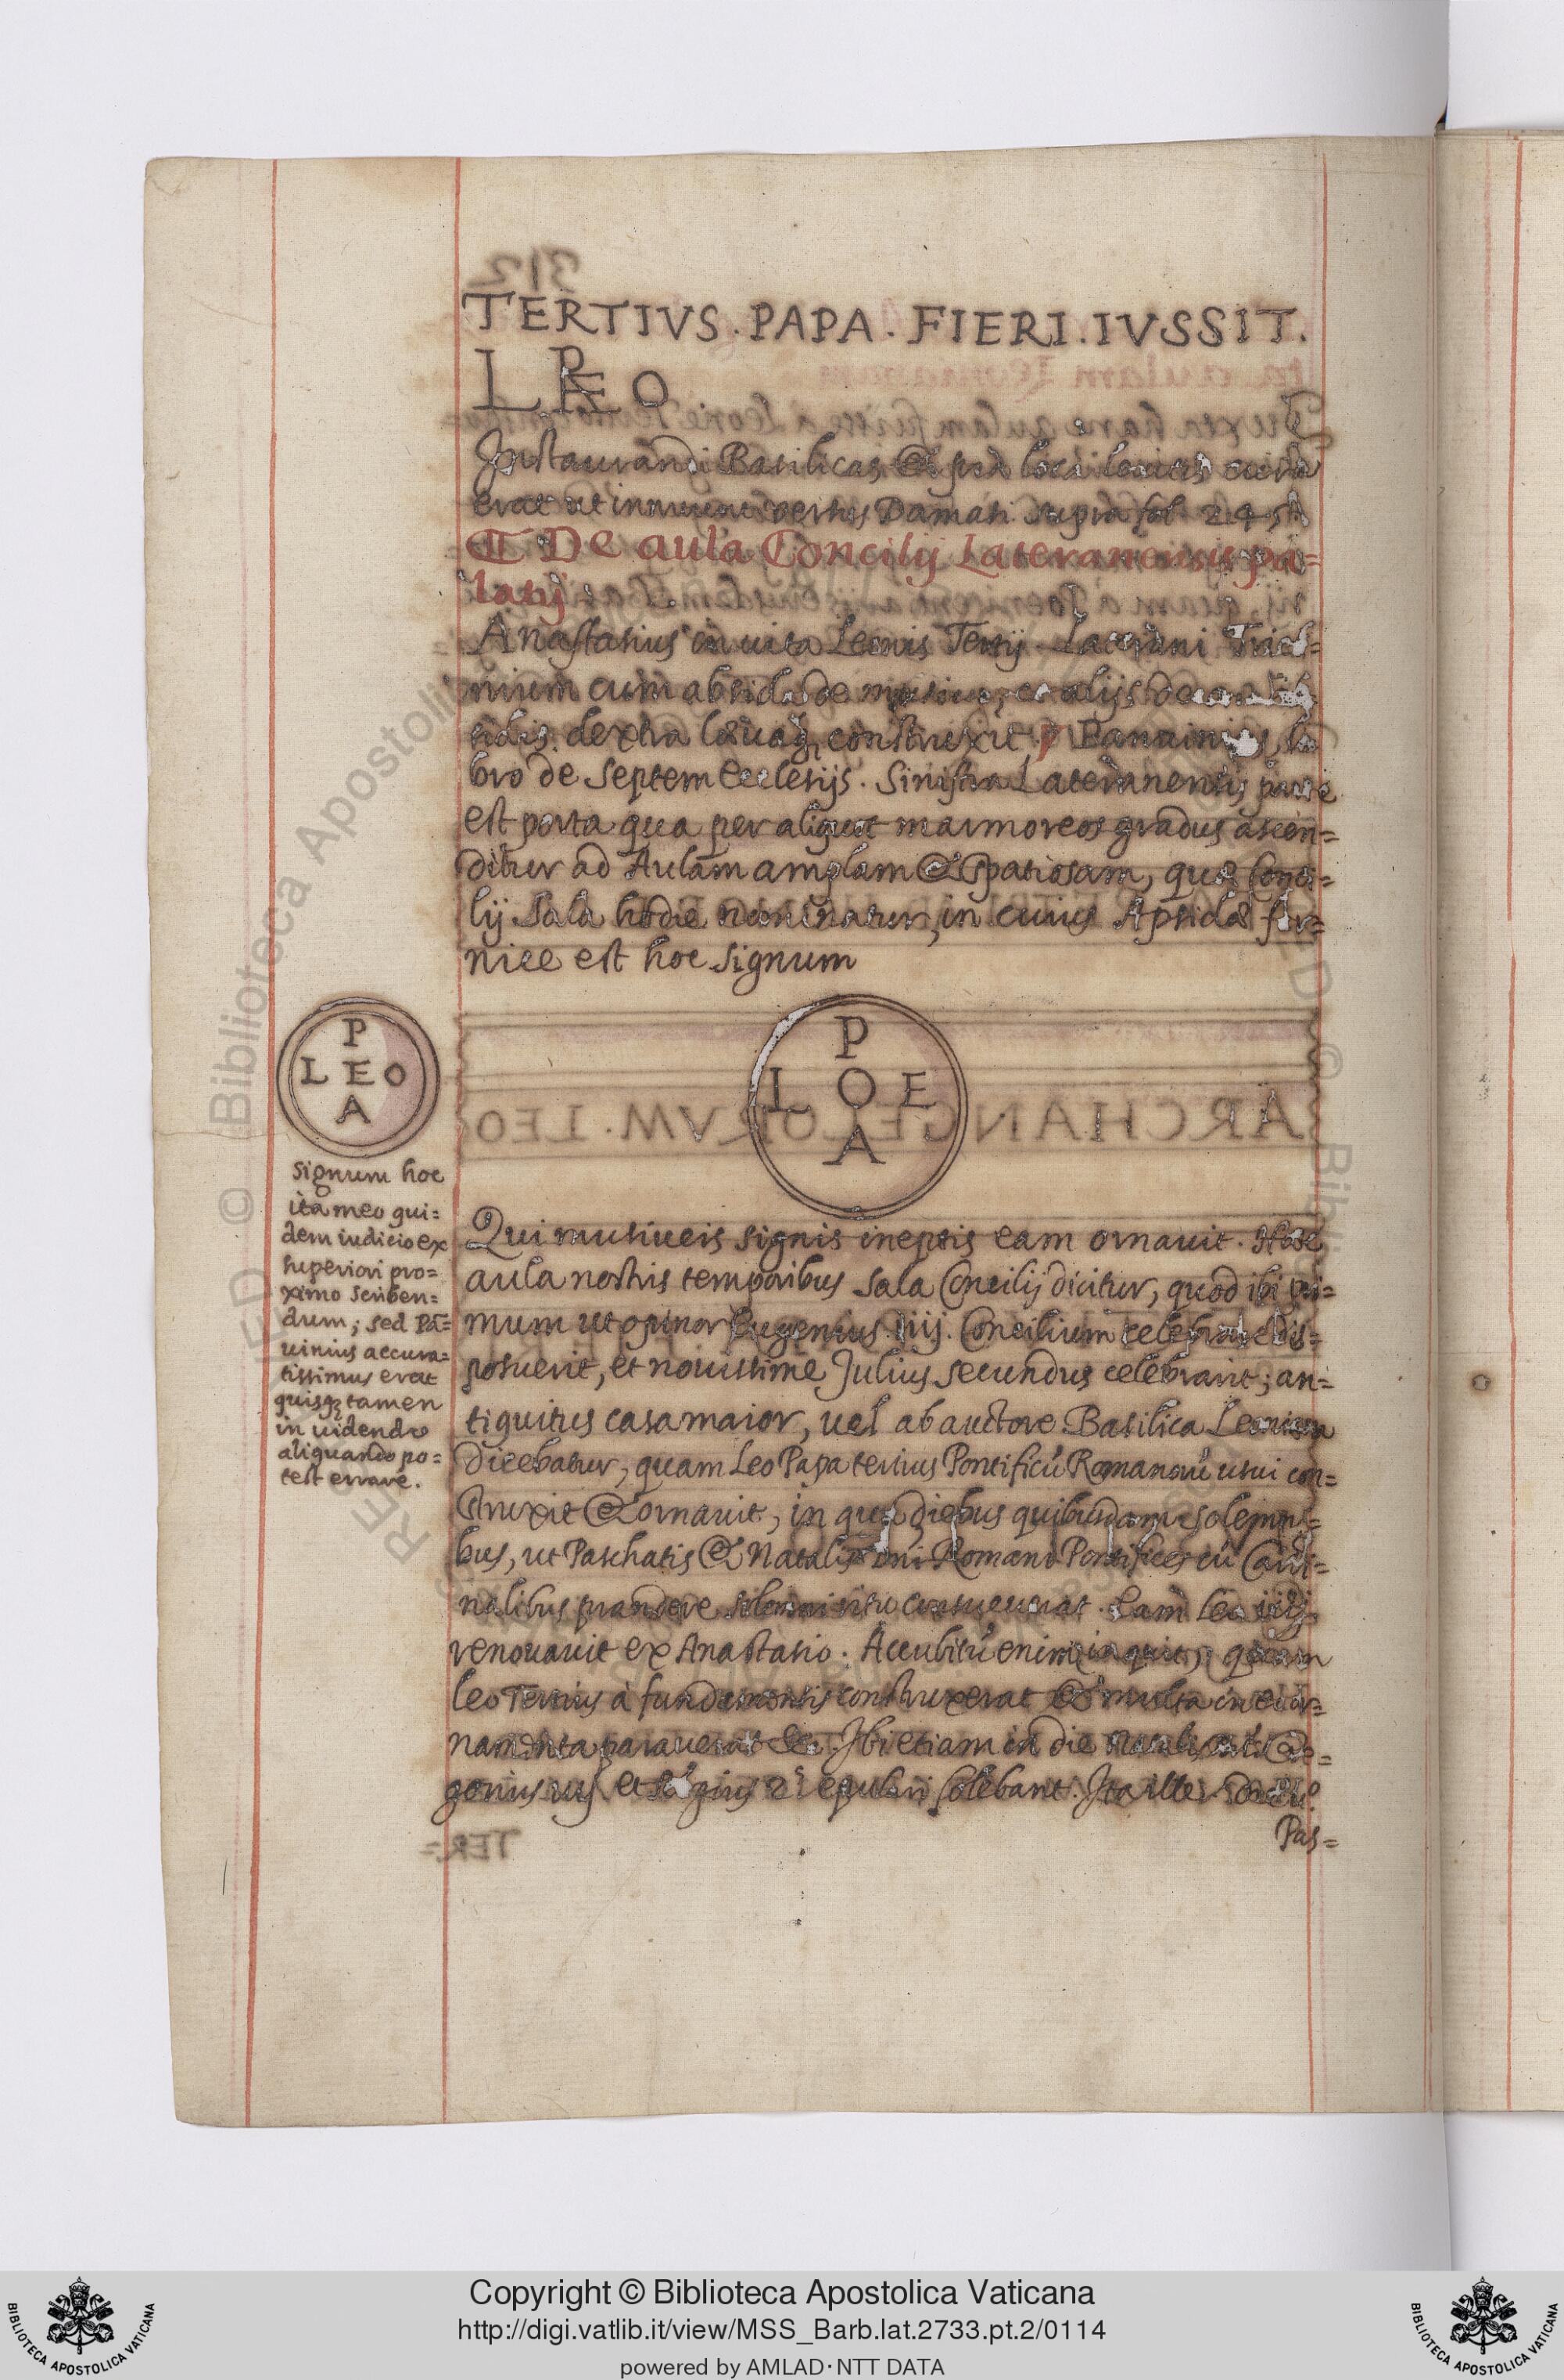 TERTIVS . PAPA . FIERI . IVSSIT .
P
L E O
Instaurandi Basilicas & pia loca Leonis cura
erat ut innuunt versus Damasi supra fol 245
De aula Concilij Lateranensis pa=
latij
Anastasius in uita Leonis Tertij Laterani Tricli=
nium cum absida de musiuo, et alijs decem ab
sidis dextra læuaqȝ construxit. Panuinius li
bro de septem Ecclesijs. Sinistra Lateranensis parte
est porta qua per aliquot marmoreos gradus ascen=
ditur ad Aulam amplam & spatiosam, quæ Conci=
lij Sala hodie nominatur, in cuius Apsidæ for=
nice est hoc signum
P
L E O
A
P
L O E
A
signum hoc
ita meo qui=
dem iudicio ex
superiori pro=
ximo scriben=
dum; sed Pa=
uinius accura=
tissimus erat
quisqȝ tamen
in uidendo
aliquando po=
test errare.
Qui musiueis signis ineptis eam ornauit. Hæc
aula nostris temporibus Sala Concilij dicitur, quod ibi pri=
mum ut opinor Eugenius iiij. Concilium celebrare dis=
posuerit, et nouissime Julius secundus celebravit; an=
tiquitus casa maior, uel ab auctore Basilica Leoniana
dicebatur, quam Leo Papa tertius Pontificū Romanorū usui con=
struxit & ornauit, in qua diebus quibusdam solemni=
bus, ut Paschatis & Natalis Dni Romani Pontifices cū Cardi=
nalibus prandere solemni ritu consueuerat. Eam Leo iiij
renouauit ex Anastasio. Accubitū enim inquit, quem
Leo Tertius à fundamentis construxerat & multa in eo or=
namenta parauerat &c. Ibi etiam in die Natalis
et epulari solebant. Ita ille.
Pas=
TER=
312
ARCHANGELORVM . LEO
Copyright © Biblioteca Apostolica Vaticana
http://digi.vatlib.it/view/MSS_Barb.lat.2733.pt.2/0114
powered by AMLAD·NTT DATA
BIBLIOTECA APOSTOLICA VATICANA
BIBLIOTECA APOSTOLICA VATICANA